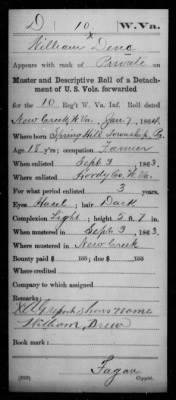 D | 10 | W.Va.
William Deno
Appears with rank of Private on
Muster and Descriptive Roll of a Detach-
ment of U. S. Vols. forwarded
for the 10 Reg't W. Va. Inf. Roll dated
New Creek, W.Va. Jan 7, 1864.
Where born Spring Hill Township Pa.
Age 18 y'rs; occupation Farmer
When enlisted Sept. 3, 1863.
Where enlisted Hardy Co. W. Va.
For what period enlisted 3 years.
Eyes Hazel; hair Dark
Complexion Light; height 5 ft. 7 in.
When mustered in Sept 3, 1863
Where mustered in New Creek
Bounty paid $ 100; due $ 100
Where credited
Company to which assigned
Remarks:
shows name
William Drew
Book mark:
Fagan
Copyist.